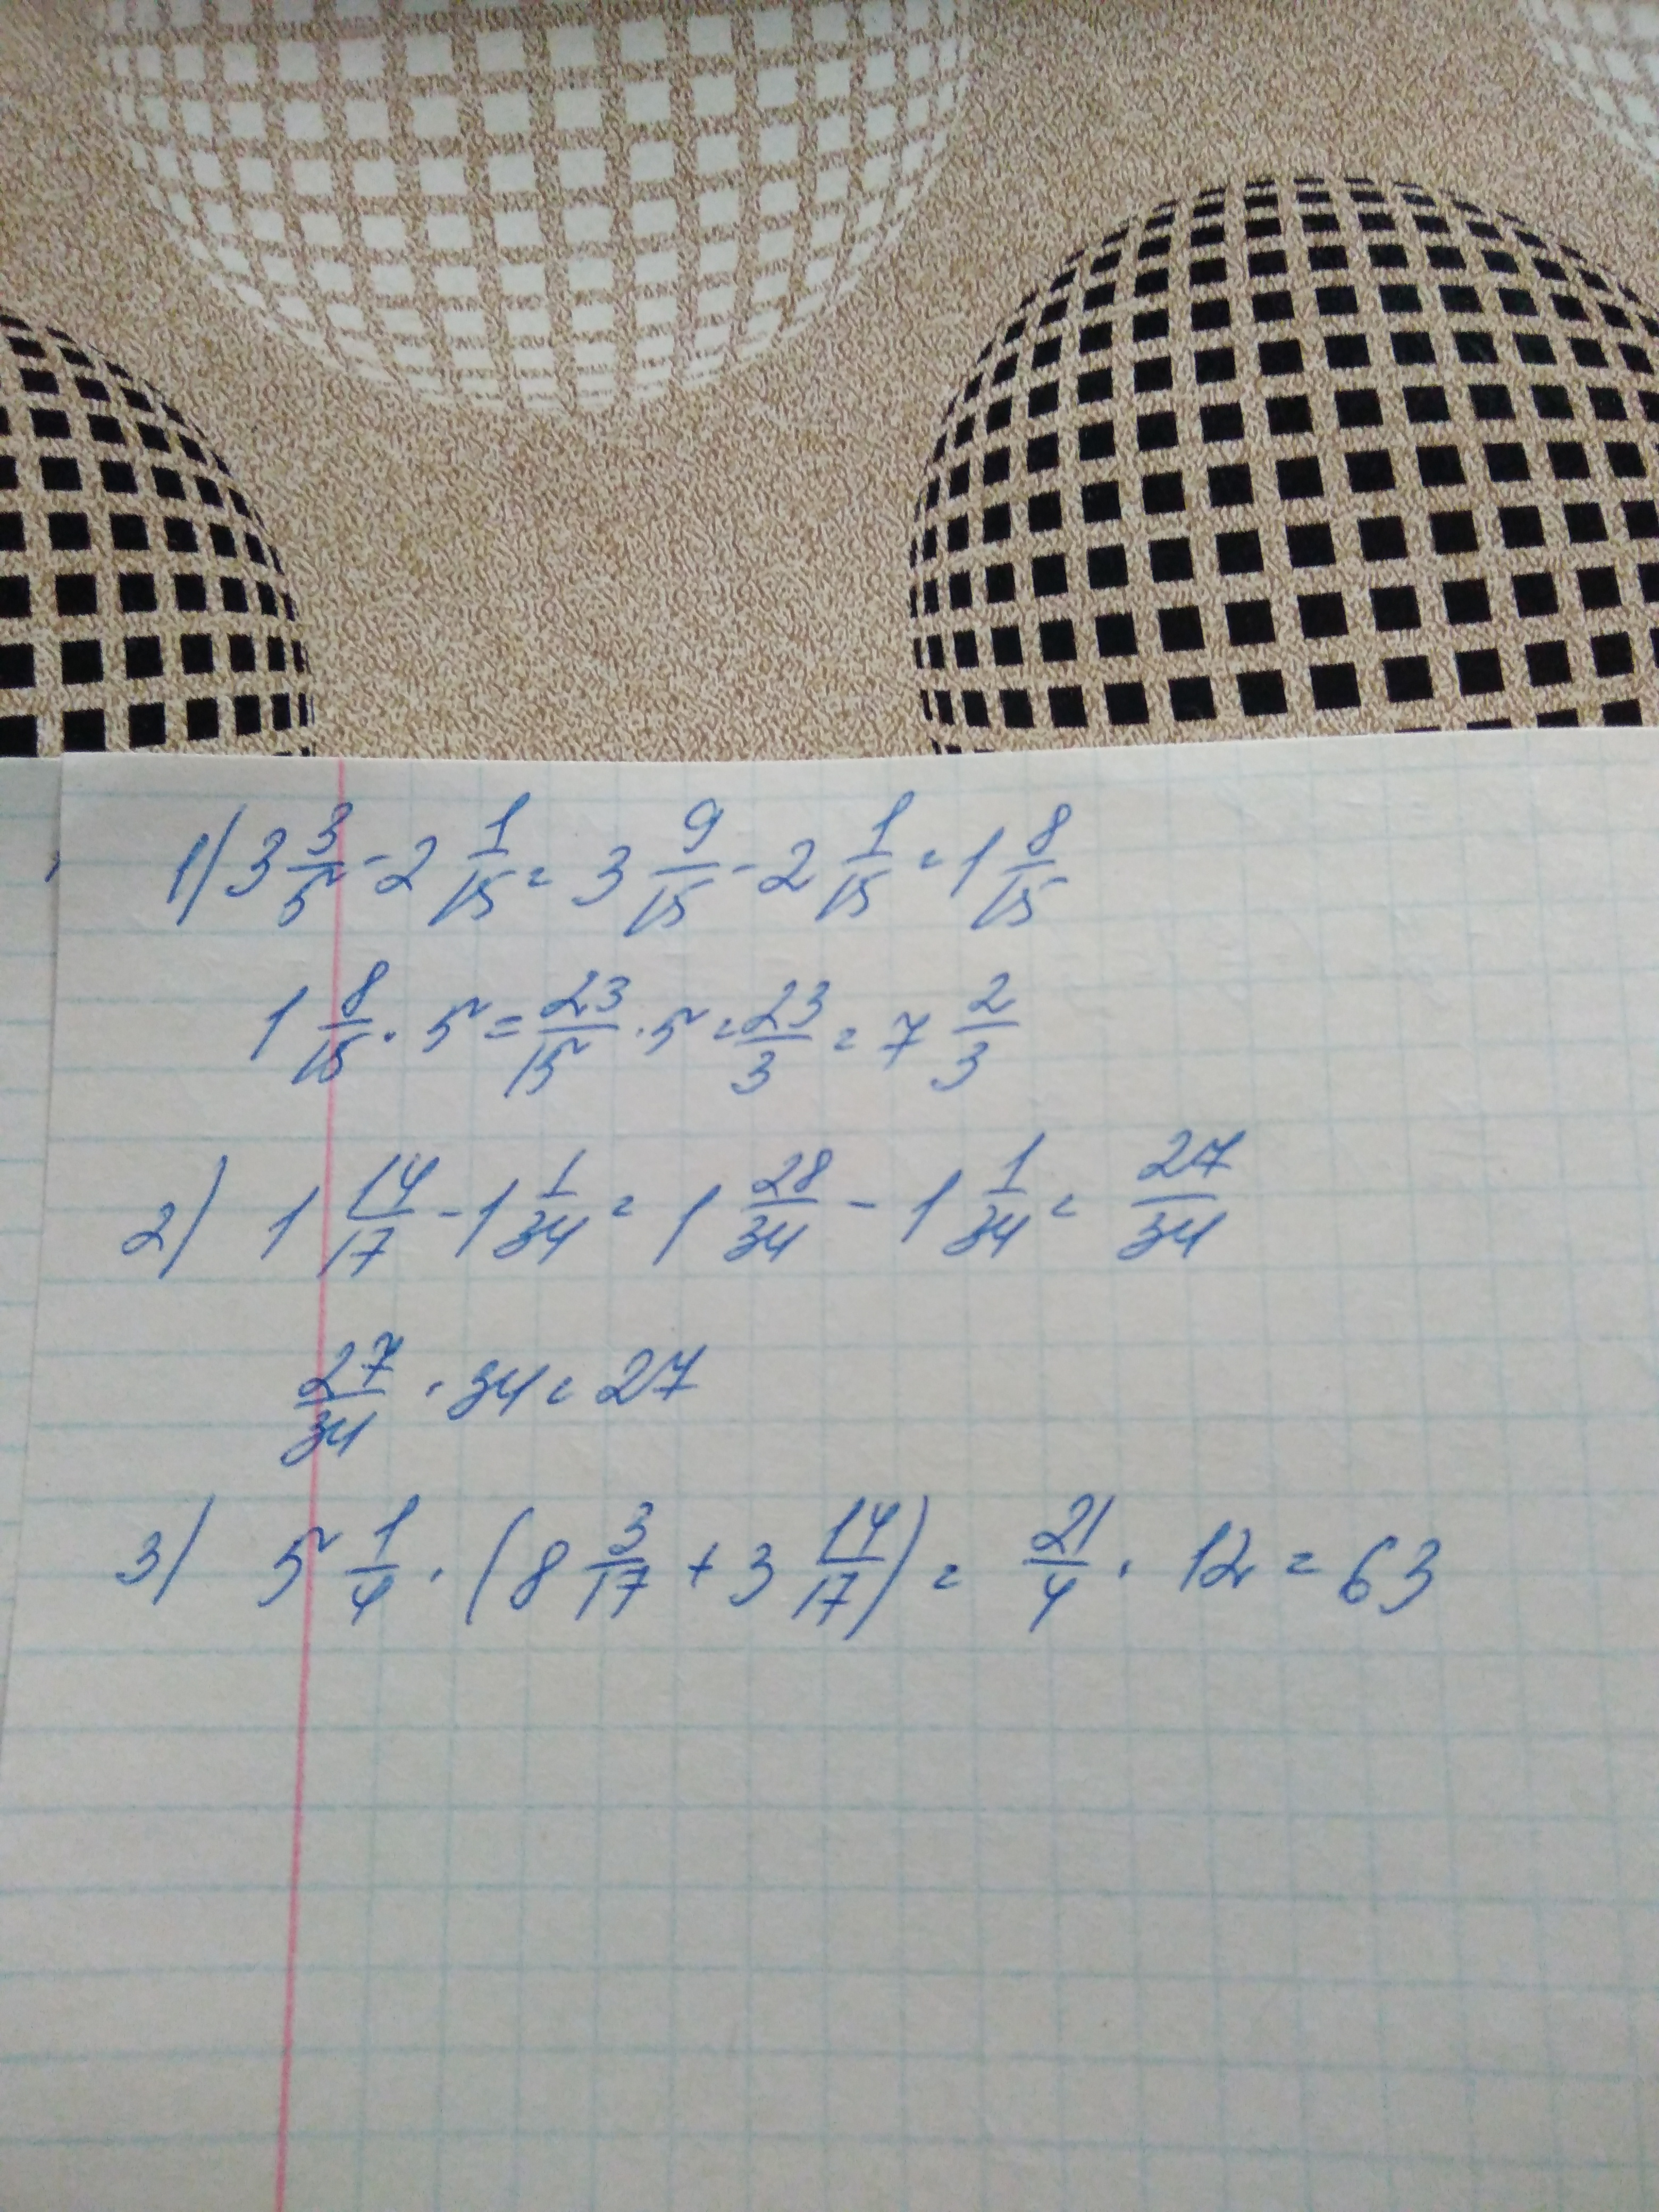 1) 3 3/5 - 2 1/15 = 3 9/15 - 2 1/15 = 1 8/15
1 8/15 · 5 = 23/15 · 5 = 23/3 = 7 2/3
2) 1 14/17 - 1 1/34 = 1 28/34 - 1 1/34 = 27/34
27/34 · 34 = 27
3) 5 1/4 · (8 3/17 + 3 14/17) = 21/4 · 12 = 63